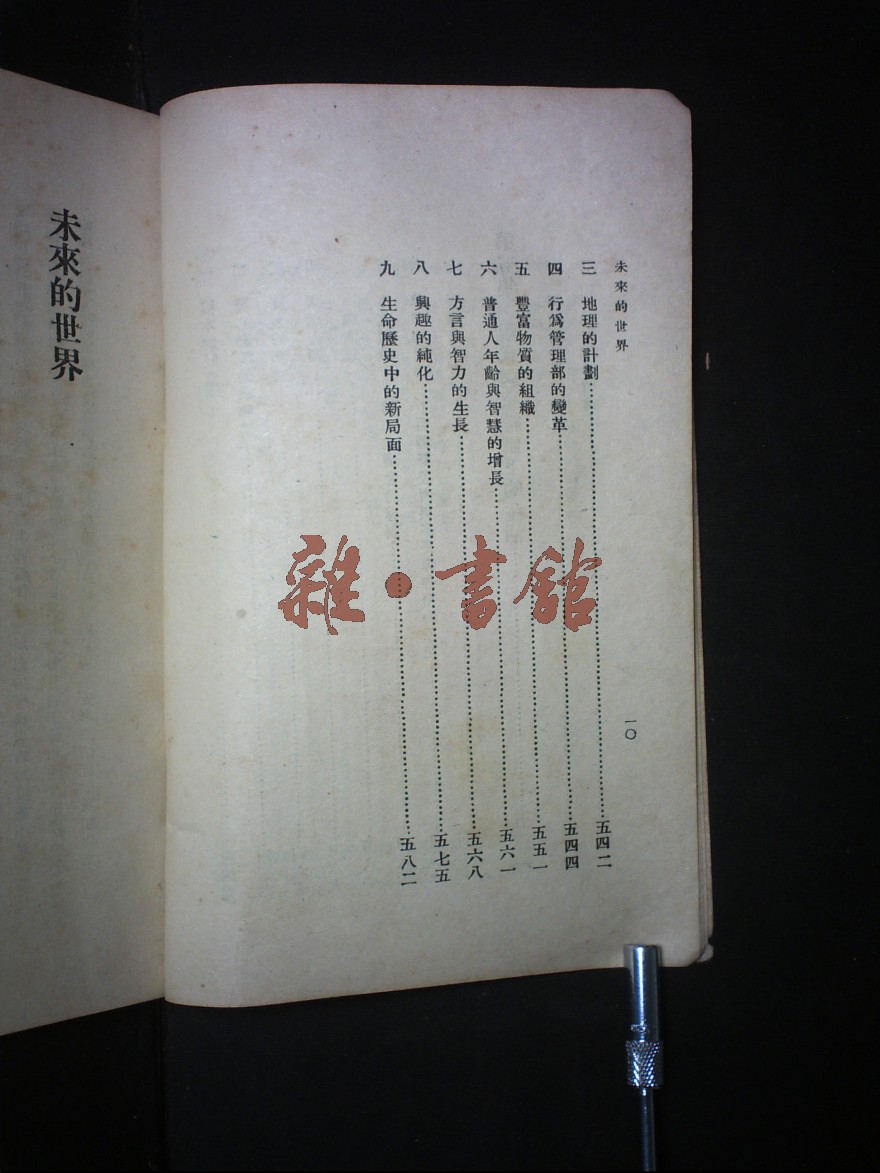 未來的世界
一〇
三 地理的計劃……五四二
四 行爲管理部的變革……五四四
五 豐富物質的組織……五五一
六 普通人年齡與智慧的增長……五六一
七 方言與智力的生長……五六八
八 興趣的純化……五七五
九 生命歷史中的新局面……五八二
未來的世界
雜·書館